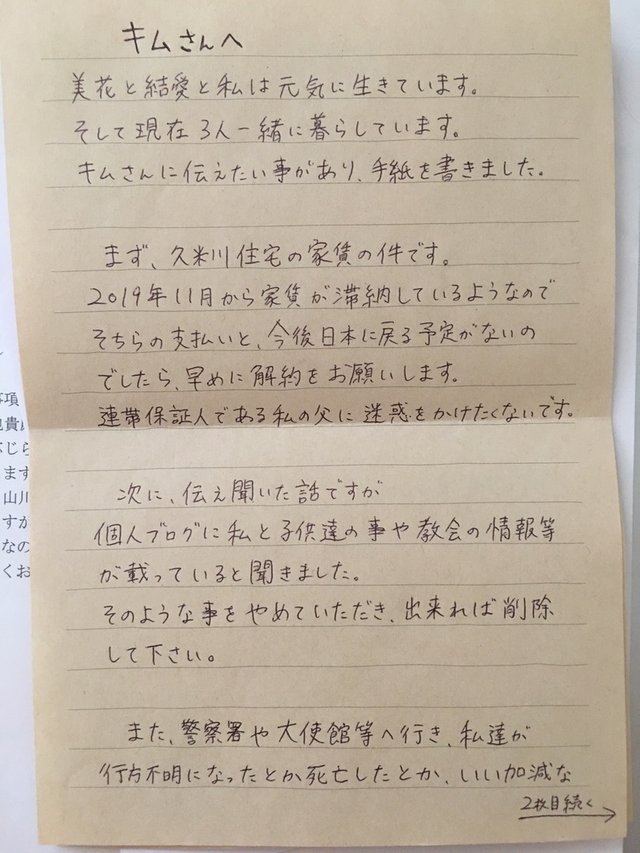 キムさんへ
美花と結愛と私は元気に生きています。
そして現在3人一緒に暮らしています。
キムさんに伝えたい事があり、手紙を書きました。
まず、久米川住宅の家賃の件です。
2019年11月から家賃が滞納しているようなので
そちらの支払いと、今後日本に戻る予定がないの
でしたら、早めに解約をお願いします。
連帯保証人である私の父に迷惑をかけたくないです。
次に、伝え聞いた話ですが
個人ブログに私と子供達の事や教会の情報等
が載っていると聞きました。
そのような事をやめていただき、出来れば削除
して下さい。
また、警察署や大使館等へ行き、私達が
行方不明になったとか死亡したとか、いい加減な
2枚目続く
事項
ます
山川
すが
なの
くお